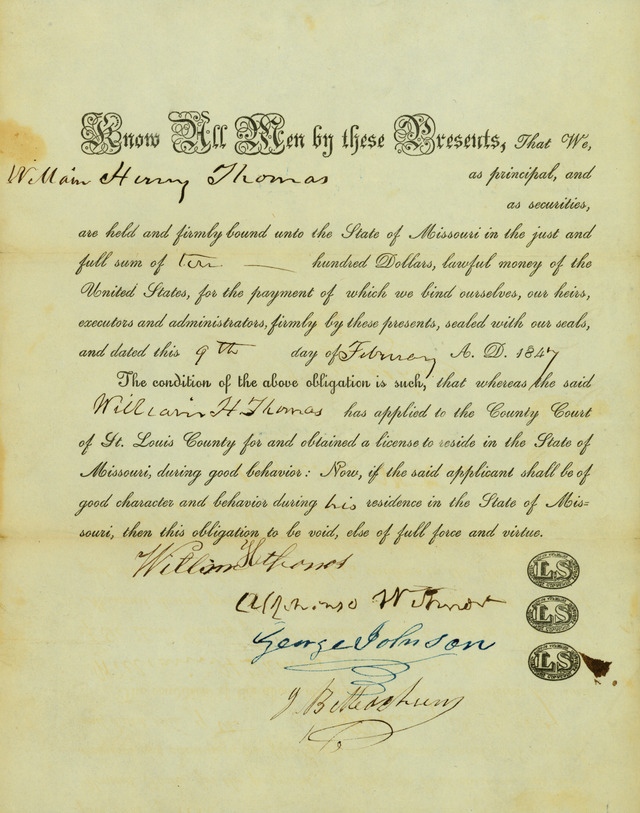 Know All Men by these Presents, That We,
William Henry Thomas as principal, and
as securities,
are held and firmly bound unto the State of Missouri in the just and
full sum of ten hundred Dollars, lawful money of the
United States, for the payment of which we bind ourselves, our heirs,
executors and administrators, firmly by these presents, sealed with our seals,
and dated this 9th day of February A. D. 1847
The condition of the above obligation is such, that whereas, the said
William H Thomas has applied to the County Court
of St. Louis County for and obtained a license to reside in the State of
Missouri, during good behavior: Now, if the said applicant shall be of
good character and behavior during his residence in the State of Mis=
souri, then this obligation to be void, else of full force and virtue.
William H Thomas
LS
Alphonso
LS
George Johnson
LS
J B